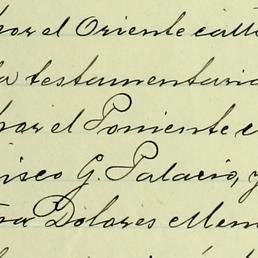 por el Oriente calle
la testamentaria
por el Poniente c
isco G. Palacio, y
ra Dolores Men